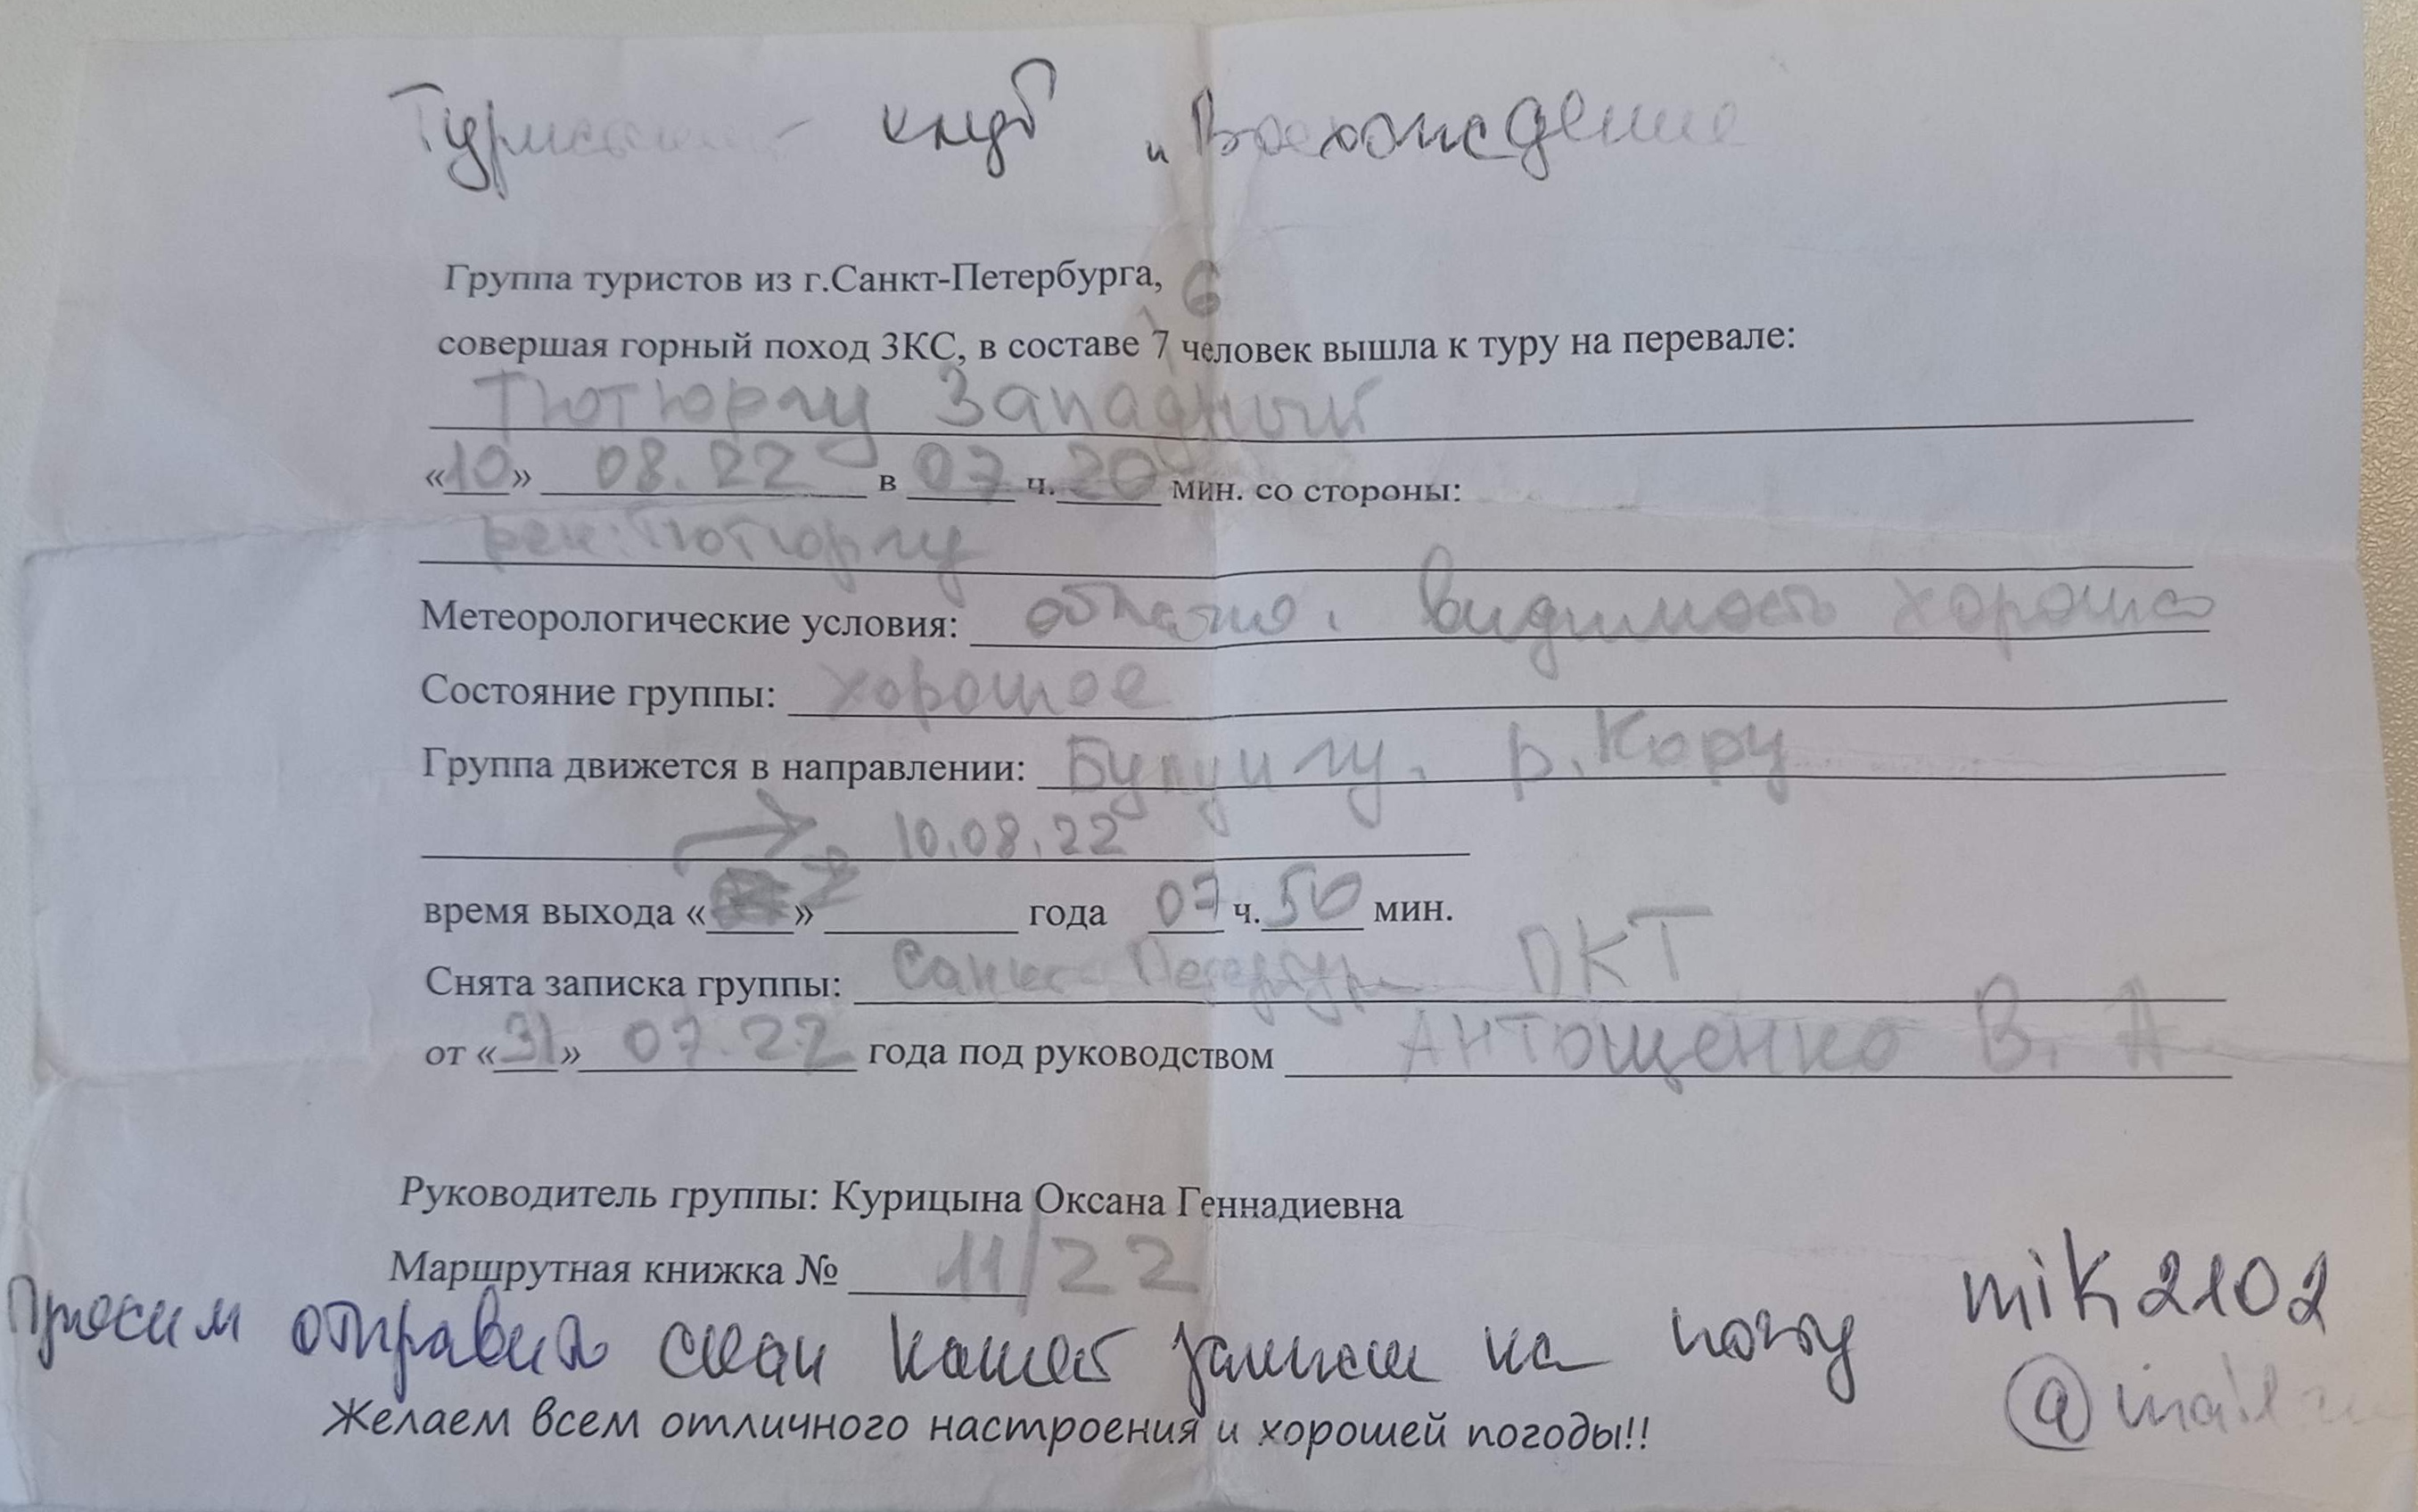 Туристский клуб "Восхождение
Группа туристов из г.Санкт-Петербурга,
6
совершая горный поход 3КС, в составе 7 человек вышла к туру на перевале:
Тютюргу Западный
«10» 08.22 в 07 ч. 20 мин. со стороны:
рек: Тютюргу
Метеорологические условия: облачно, видимость хорошая
Состояние группы: хорошее
Группа движется в направлении: р. Кору
10.08.22
время выхода « » года 07 ч. 50 мин.
Снята записка группы: Санкт-Петербург ПКТ
от «31» 07.22 года под руководством Антощенко В. А.
Руководитель группы: Курицына Оксана Геннадиевна
Маршрутная книжка № 11/22
Просим отправить скан нашей записки на почту mik2102
@mail.ru
Желаем всем отличного настроения и хорошей погоды!!